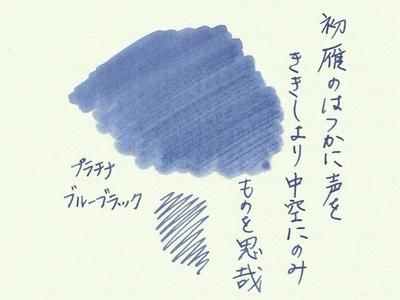 初雁のはつかに声を
ききしより中空にのみ
ものを思哉
プラチナ
ブルーブラック